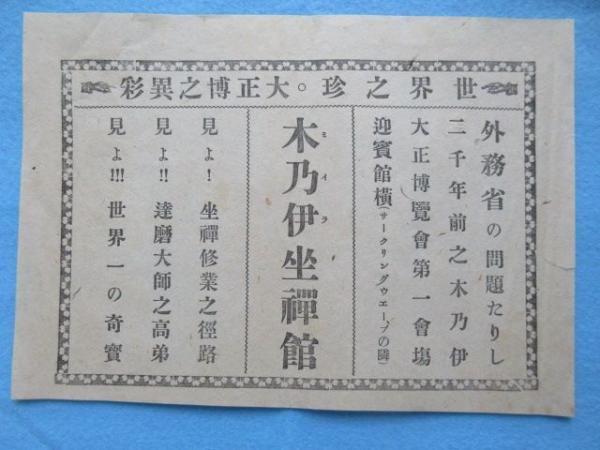 世界之珍。大正博之異彩
外務省の問題たりし
二千年前之木乃伊
大正博覽會第一會塲
迎賓館橫(サークリングウエーブの隣)
木乃伊坐禪館
ミイラ
見よ! 坐禪修業之徑路
見よ!! 達磨大師之高弟
見よ!!! 世界一の奇寶